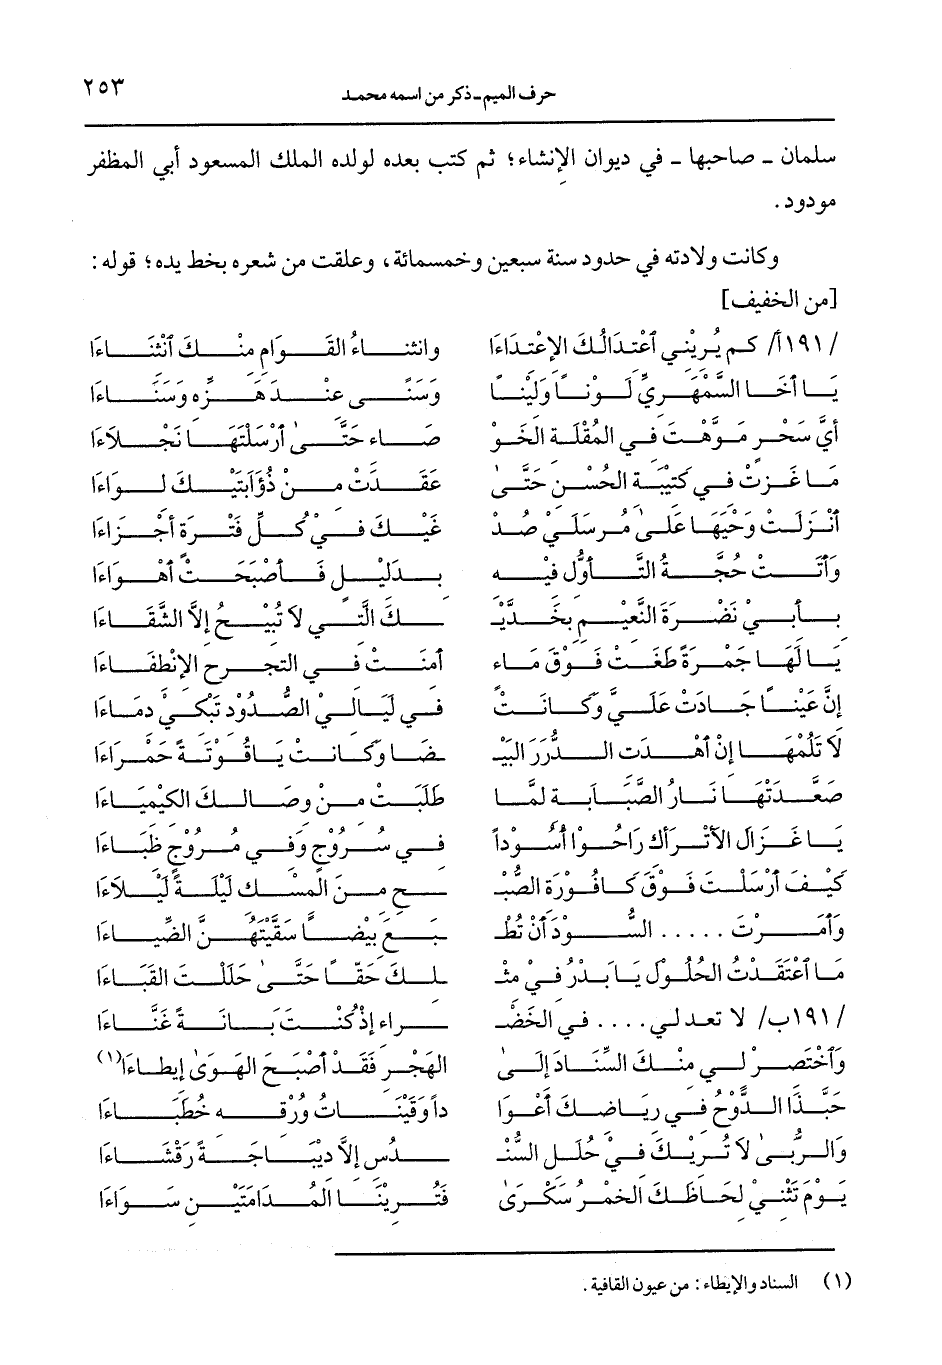 حرف الميم ـ ذكر من اسمه محمد ٢٥٣
سلمان ـ صاحبها ـ في ديوان الإنشاء؛ ثم كتب بعده لولده الملك المسعود أبي المظفر
مودود.
وكانت ولادته في حدود سنة سبعين وخمسمائة، وعلقت من شعره بخط يده؛ قوله:
[من الخفيف]
/١٩١أ/ كم يُريني ٱعتدالُكَ الإعْتداءَا وانثناءُ القَوَامِ منكَ ٱنْثناءَا
يَا أخَا السَّمْهَريِّ لَوْناً وَليْناً وَسَنًى عِنْدَ هَزِّهِ وَسَنَاءَا
أيَّ سَحْرٍ مَوَّهْتَ في المُقْلَةِ الخَوْ صَاءِ حَتَّىٰ أرْسَلْتَهَا نَجْلاَءَا
مَا غَزَتْ في كَتيْبَةِ الحُسْنِ حَتَّىٰ عَقَدَتْ مِنْ ذُؤَابَتَيْكَ لِوَاءَا
أنْزلَتْ وَحْيَهَا عَلىٰ مُرسَلَيْ صُدْ غَيْكَ فيْ كُلِّ فَتْرَةٍ أجْزَاءَا
وَأتَتْ حُجَّةُ التَّأوُّلِ فيْهِ بِدَليْلٍ فَأصْبَحَتْ أهْوَاءَا
بِأبيْ نَضْرَةَ النَّعيْمِ بِخَدَّيْـ ـكَ الَّتيْ لا تُبيْحُ إلاَّ الشَّقَاءَا
يَا لَهَا جَمْرَةً طَغَتْ فَوْقَ مَاءٍ أمنَتْ في التجرح الإنْطفَاءَا
إنَّ عَيْناً جَادَتْ عَلَيَّ وَكَانَتْ في لَيَالي الصُّدُوْدِ تَبْكيْ دمَاءَا
لاَ تَلُمْهَا إنْ أهْدَتِ الدُّرَرَ البَيْـ ـضَا وَكَانتْ يَاقُوْتَةً حَمْرَاءَا
صَعَّدَتْهَا نَارُ الصَّبَابَةِ لَمَّا طَلَبَتْ مِنْ وصَالِكَ الكيْمَيَاءَا
يَا غَزَالَ الأتْرَاكِ رَاحُوا أسُوْداً في سُرُوْجٍ وَفي مُرُوْجٍ ظبَاءَا
كَيْفَ أرْسَلْتَ فَوْقَ كَافُوْرَةِ الصُّبْـ ـحِ مِنَ المسْكِ لَيْلَةً لَيْلاَءَا
وَأمَرْتَ ..... السُّوْدَ أنْ تُطْـ ـبَعَ بيْضاً سَقَيْتَهُنَّ الضِّيَاءَا
مَا ٱعتَقَدْتُ الحُلُولَ يَا بَدْرُ فيْ مثْـ ـلكَ حَقّاً حَتَّىٰ حَلَلْتَ القَبَاءَا
/١٩١ب/ لا تعدلي .... في الخَضْـ ـراءِ إذْ كُنْتَ بَانَةً غَنَّاءَا
وَٱخْتَصِرْ لي منْكَ السِّنَادَ إلَىٰ الهَجْرِ فَقَدْ أصْبَحَ الهَوَىٰ إيطَاءَا(١)
حَبَّذَا الدَّوْحُ في ريَاضكَ أعْوَا داً وَقَيْنَاتُ وُرْقِهِ خُطَبَاءَا
وَالرُّبىٰ لاَ تُريْكَ فيْ حُلَلِ السُّنْـ ـدُسِ إلاَّ ديْبَاجَةً رَقْشَاءَا
يَوْمَ تَثْنيْ لحَاظَكَ الخَمْرُ سَكْرَىٰ فَتُريْنَا المُدَامَتَيْنِ سَوَاءَا
(١) السناد والإيطاء: من عيون القافية.